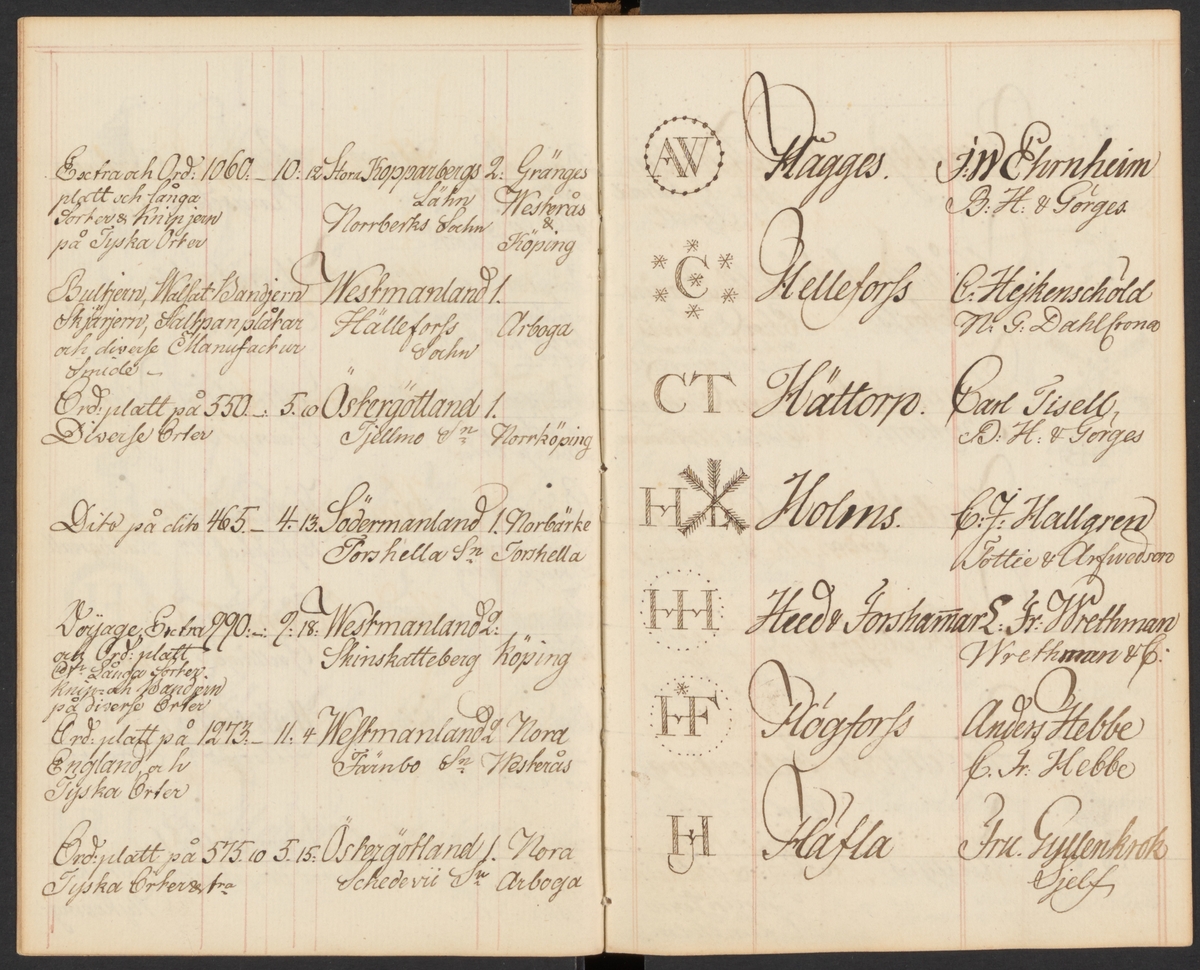 Extra och Ord: 1060. _ 10. 12 Stora Kopparbergs 2: Gränges
platt och långa Lähn Westerås
Sorter & knipjern Norrberks Sochn &
på Tyska Orter Köping
Bultjern, Walsat Bandjern Westmanland 1.
Skjärjern, Saltpanplåtar Hälleforss Arboga
och diverse Manufactur Sochn
Smide _
Ord: platt på 550. _ 5. 10 Östergötland 1.
Diverse Orter Tjellmo Sn Norrköping
Dito på dito 465. _ 4. 13. Södermanland 1. Norbärke
Torshella Sn Torshella
Voyage, Extra 990. _ 9. 18. Westmanland 2:
och Ord: platt Skinskatteberg Köping
Dn Långa Sorter
knip- och Bandjern
på diverse Orter
Ord: platt på 1273. _ 11. 4 Westmanland 2 Nora
England och Färnbo Sn Westerås
Tyska Orter
Ord: platt på 575. 10 5. 15. Östergötland 1. Nora
Tyska Orter Schedevii Sn Arboga
AW Hagges. J. W Ehrnheim
B. H. & Görges.
C Helleforss C. Hejkenschöld
N. G. Dahlscrona
CT Hättorp. Carl Tisell,
B. H. & Görges
H Holms. C. J. Hallgren
Tottie & Arfwedson
HH Hed & Forshammar L. Fr. Wrethman
Wrethman & C.
HF Högforss Anders Hebbe
C. Fr. Hebbe
H Häfla Fru. Gyllenkrok
Sjelf